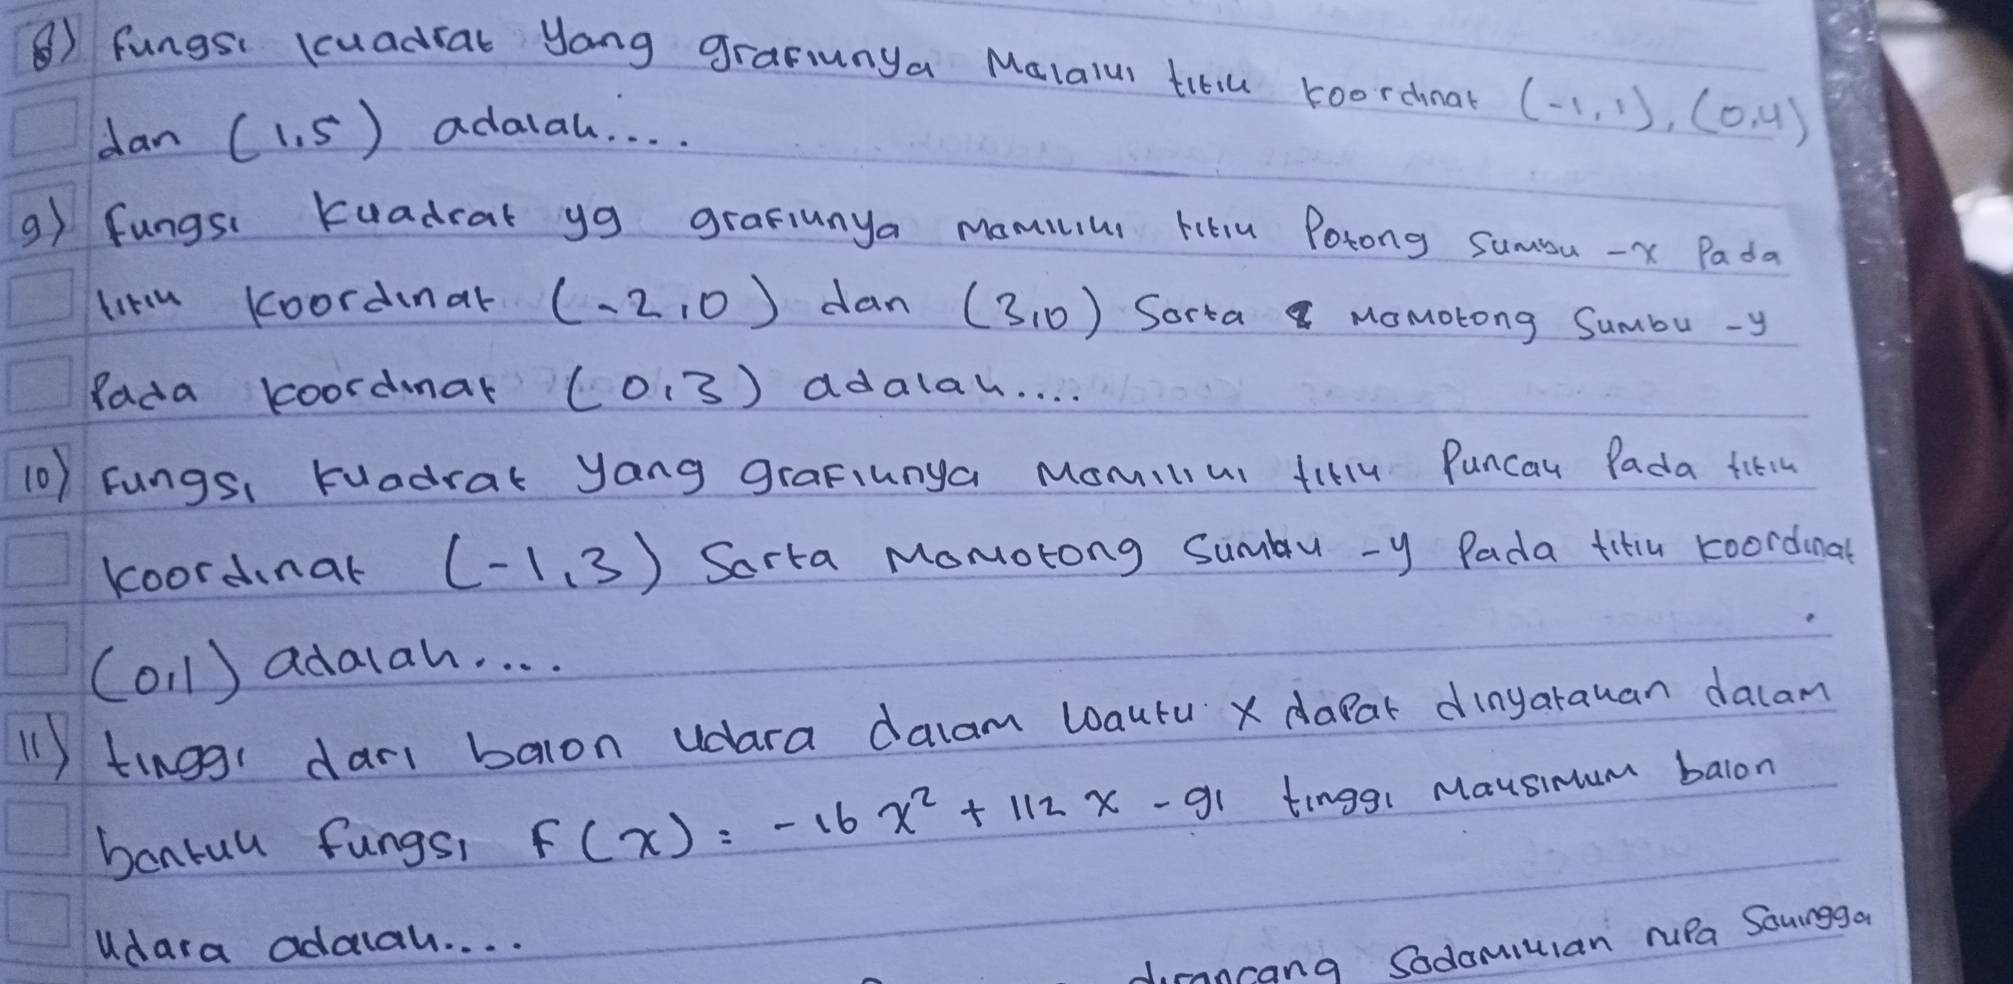 8) Fungsi kuadrat yang grafiknya Melalui titik koordinat (-1,1), (0,4)
dan (1,5) adalah....
9) Fungsi kuadrat yg grafiknya Memiliki titik Potong sumbu -x Pada
titik koordinat (-2,0) dan (3,0) Serta Memotong Sumbu -y
Pada koordinat (0,3) adalah....
10) Fungsi kuadrat yang grafiknya Memiliki titik Puncak Pada titik
koordinat (-1,3) Serta Memotong Sumbu -y Pada titik koordinat
(0,1) adalah....
11) tinggi dari balon udara dalam waktu x dapat dinyatakan dalam
bentuk fungsi F(x) = -16x² + 112x - 91 tinggi Maksimum balon
udara adalah....
dirancang Sedemikian rupa Sehingga